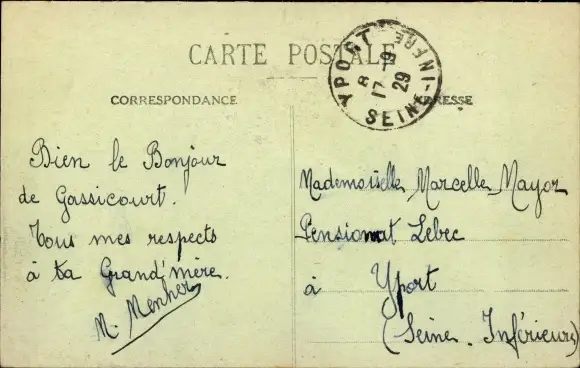 CARTE POSTALE
YPORT
SEINE-INFRE
29
CORRESPONDANCE
ADRESSE
Bien le Bonjour
de Gassicourt.
Tous mes respects
à ta Grand'mère.
Mademoiselle Marcelle Mayor
Pensionnat Lebec
à Yport
(Seine. Inférieure)